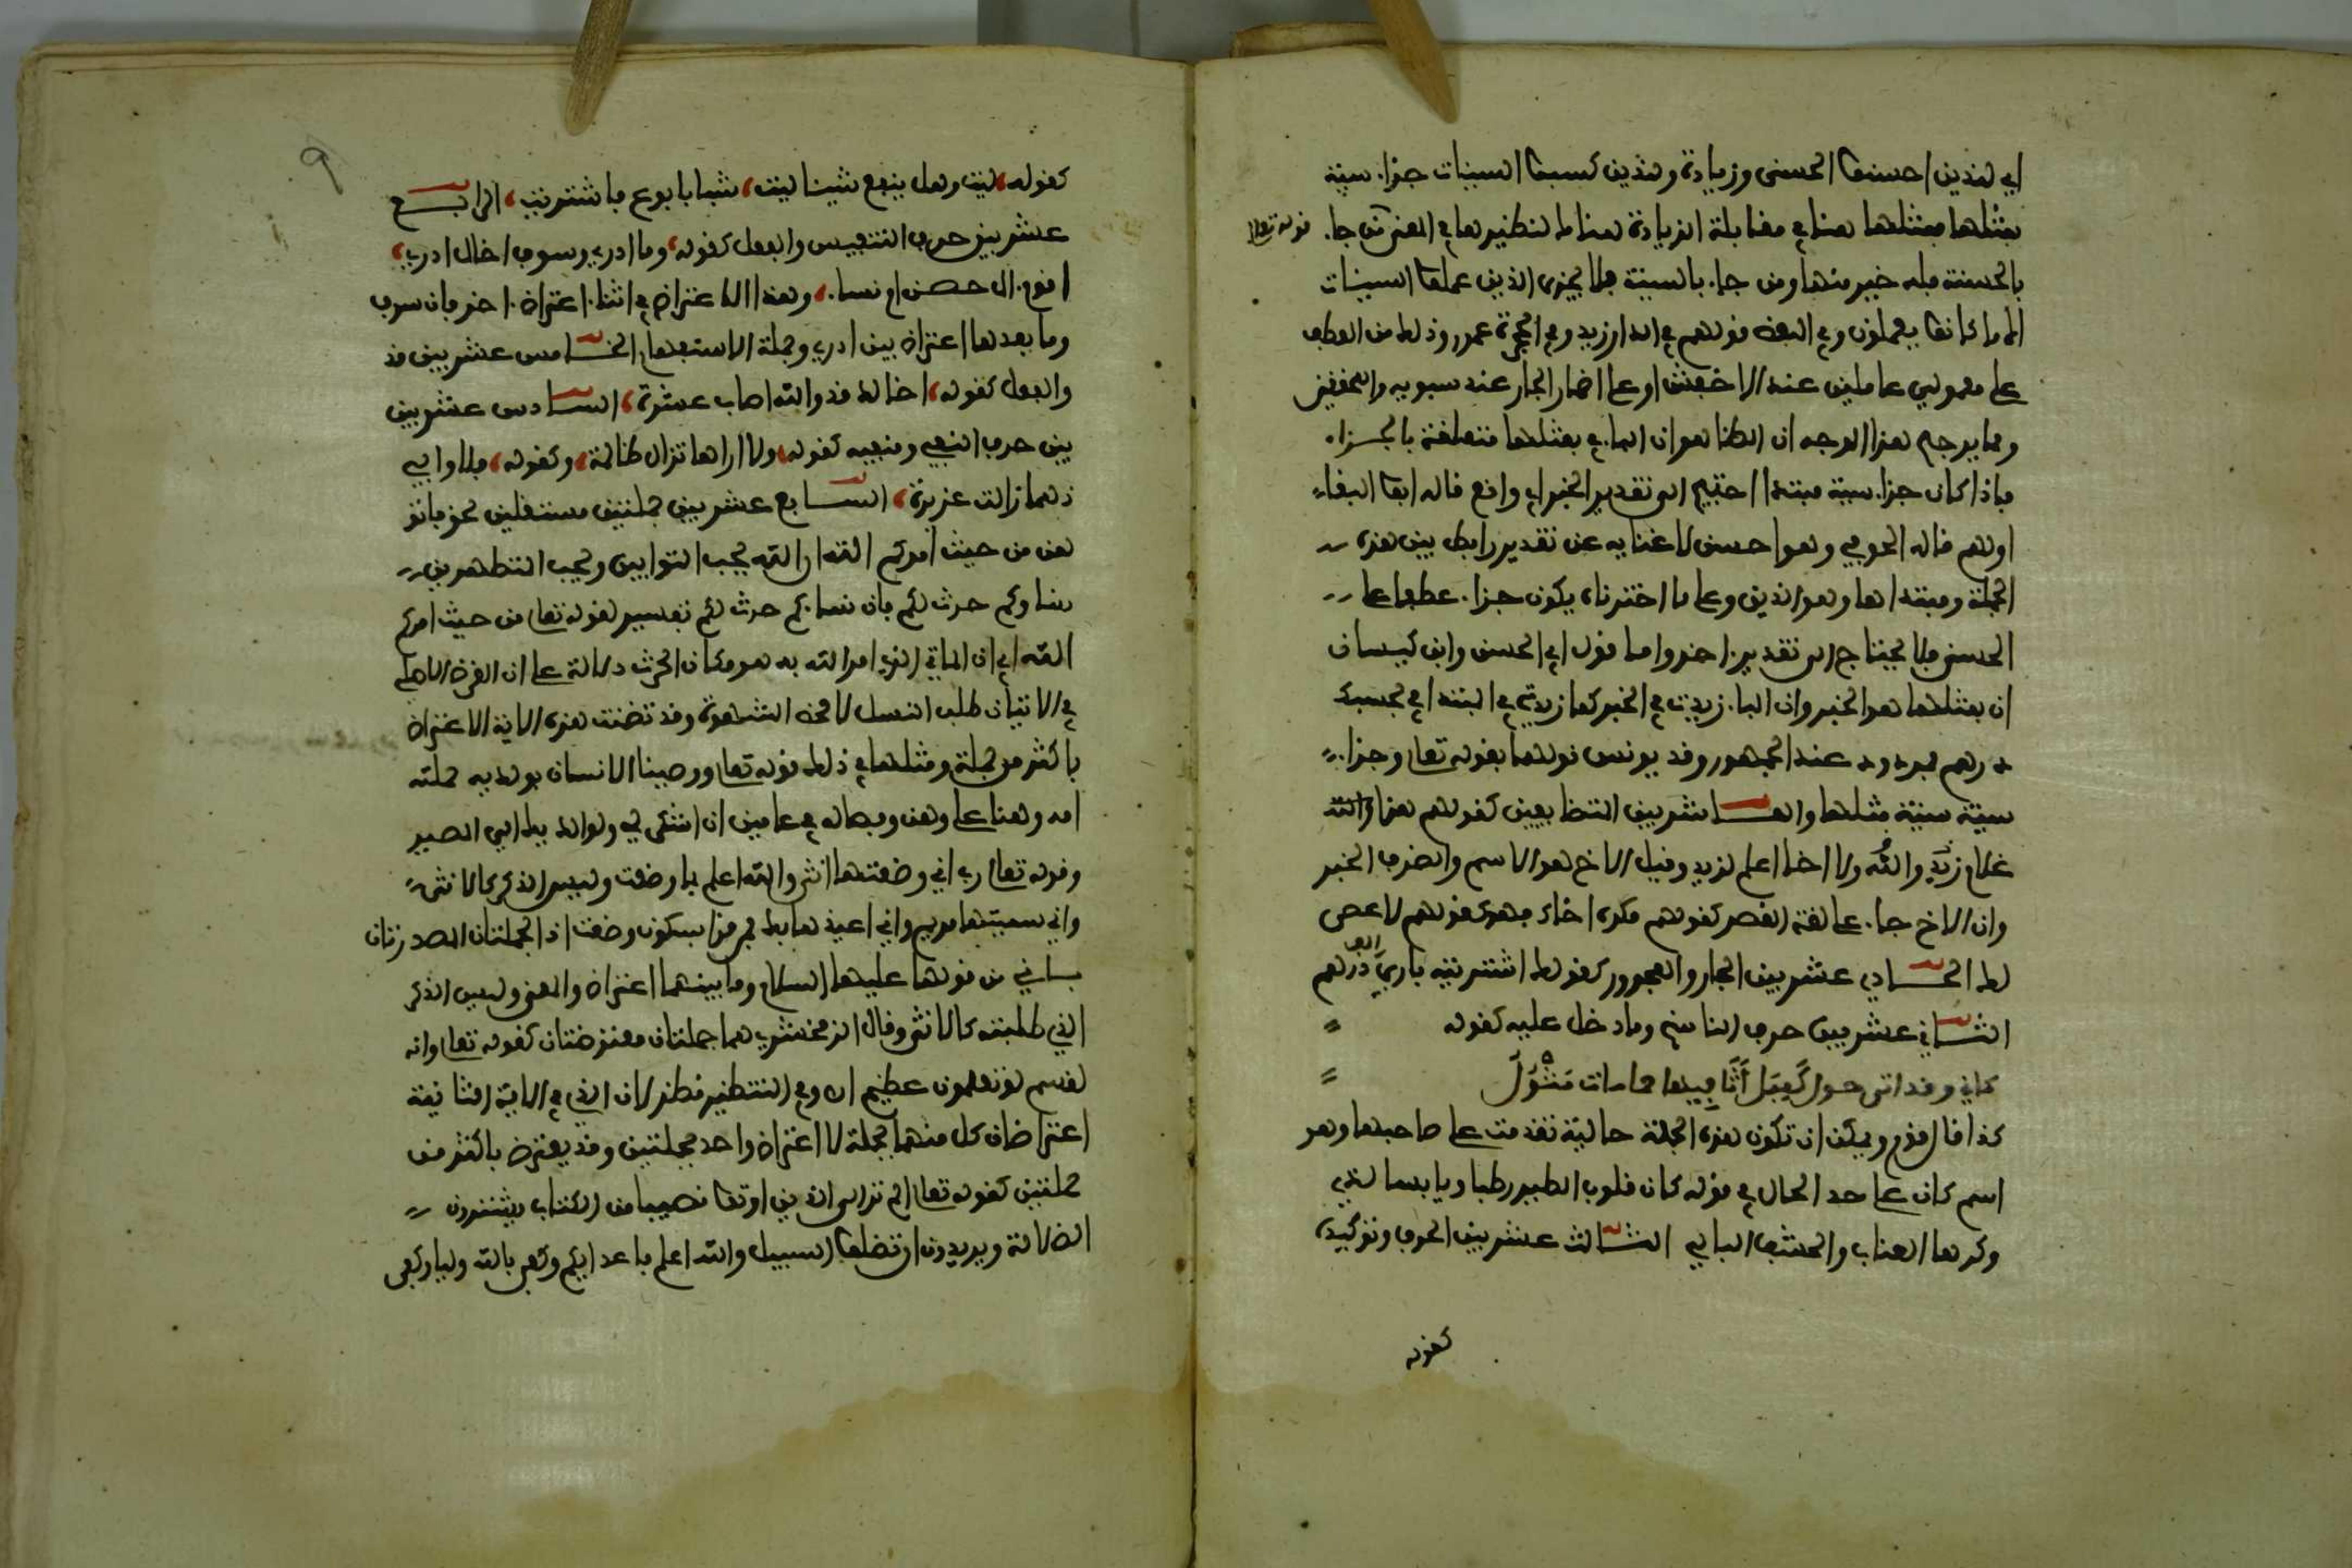 اي للذين احسنوا الحسنى وزيادة وللذين كسبوا السيئات جزاء سيئة
بمثلها فمثلها هنا في مقابلة الزيادة هناك لنظيرها في المعنى من جاء قوله تعالى
بالحسنة فله خير منها ومن جاء بالسيئة فلا يجزى الذين عملوا السيئات
الا ما كانوا يعملون وفي اللفظ قولهم في الدار زيد وفي الحجرة عمرو وذلك من العطف
على معمولي عاملين عند الاخفش او على اضمار الجار عند سيبويه والمحققين
ومما يرجح هذا الوجه ان الظاهر ان الباء في بمثلها متعلقة بالجزاء
فاذا كان جزاء سيئة مبتدا احتيج الى تقدير الخبر اي واقع قاله ابو البقاء
او لهم قاله الحوفي وهو احسن لاغنايه عن تقدير رابط بين هذه
الجملة ومبتداها وهو الذين وعلى ما اخترناه يكون جزاء عطفا على
الحسنى فلا يحتاج الى تقدير اخر واما قول ابي الحسن وابن كيسان
ان بمثلها هو الخبر وان الباء زيدت في الخبر كما زيدت في المبتدا في بحسبك
درهم فمردود عند الجمهور وقد يونس قولهما بقوله تعالى وجزاء
سيئة سيئة مثلها والعاشر بين المتضايفين كقولهم هذا والله
غلام زيد والله ولا اخا اعلم لزيد وقيل الاخ هو الاسم والظرف الخبر
وان الاخ جاء على لغة القصر كقولهم مكره اخاك فهو كقولهم لا عصى
لك الحادي عشر بين الجار والمجرور كقولك اشتريته بارى الف درهم
الثاني عشر بين حرف الناسخ وما دخل عليه كقوله
كاني وقد اتى حول كميل أثافيها حمامات مثول
كذا قال قوم ويمكن ان تكون هذه الجملة حالية تقدمت على صاحبها وهو
اسم كان على حد الحال في قوله كان قلوب الطير رطبا ويابسا لدى
وكرها العناب والحشف البالي الثالث عشر بين الحرف وتوكيده
كقوله
كقوله ليت وهل ينفع شيئا ليت شبابا بوع فاشتريت الرابع
عشر بين حرف التنفيس والفعل كقوله وما ادري وسوف اخال ادري
اقوم ال حصن ام نساء وهذا الاعتراض في اثناء اعتراض اخر فان سوف
وما بعدها اعتراض بين ادري وجملة الاستفهام الخامس عشر بين قد
والفعل كقوله اخالد قد والله اصاب عشوة السادس عشر بين
بين حرف النفي ومنفيه كقوله ولا اراها تزال ظالمة وكقوله فلا وابي
دهما زالت عزيزة السابع عشر بين جملتين مستقلين نحو فاتو
هن من حيث امركم الله ان الله يحب التوابين ويحب المتطهرين
نساوكم حرث لكم فان نساءكم حرث لكم تفسير لقوله تعالى من حيث امركم
الله اي ان الماتي الذي امر الله به هو مكان الحرث دلالة على ان الغرض الاصلي
في الاتيان طلب النسل لا محض الشهوة وقد تضمنت هذه الاية الاعتراض
باكثر من جملة ومثلها في ذلك قوله تعالى ووصينا الانسان بوالديه حملته
امه وهنا على وهن وفصاله في عامين ان اشكر لي ولوالديك الي المصير
وقوله تعالى رب اني وضعتها انثى والله اعلم بما وضعت وليس الذكر كالانثى
واني سميتها مريم واني اعيذها بك فيمن قرا بسكون وضعت اذ الجملتان المصدرتان
باني من قولها عليها السلام وما بينهما اعتراض والمعنى وليس الذكر
الذي طلبته كالانثى وقال الزمخشري هما جملتان معترضتان كقوله تعالى وانه
لقسم لو تعلمون عظيم اه وفي التنظير نظر لان الذي في الاية الثانية
اعتراضان كل منهما بجملة لا اعتراض واحد بجملتين وقد يعترض باكثر من
جملتين كقوله تعالى الم تر الى الذين اوتوا نصيبا من الكتاب يشترون
الضلالة ويريدون ان تضلوا السبيل والله اعلم باعدايكم وكفى بالله وليا وكفى